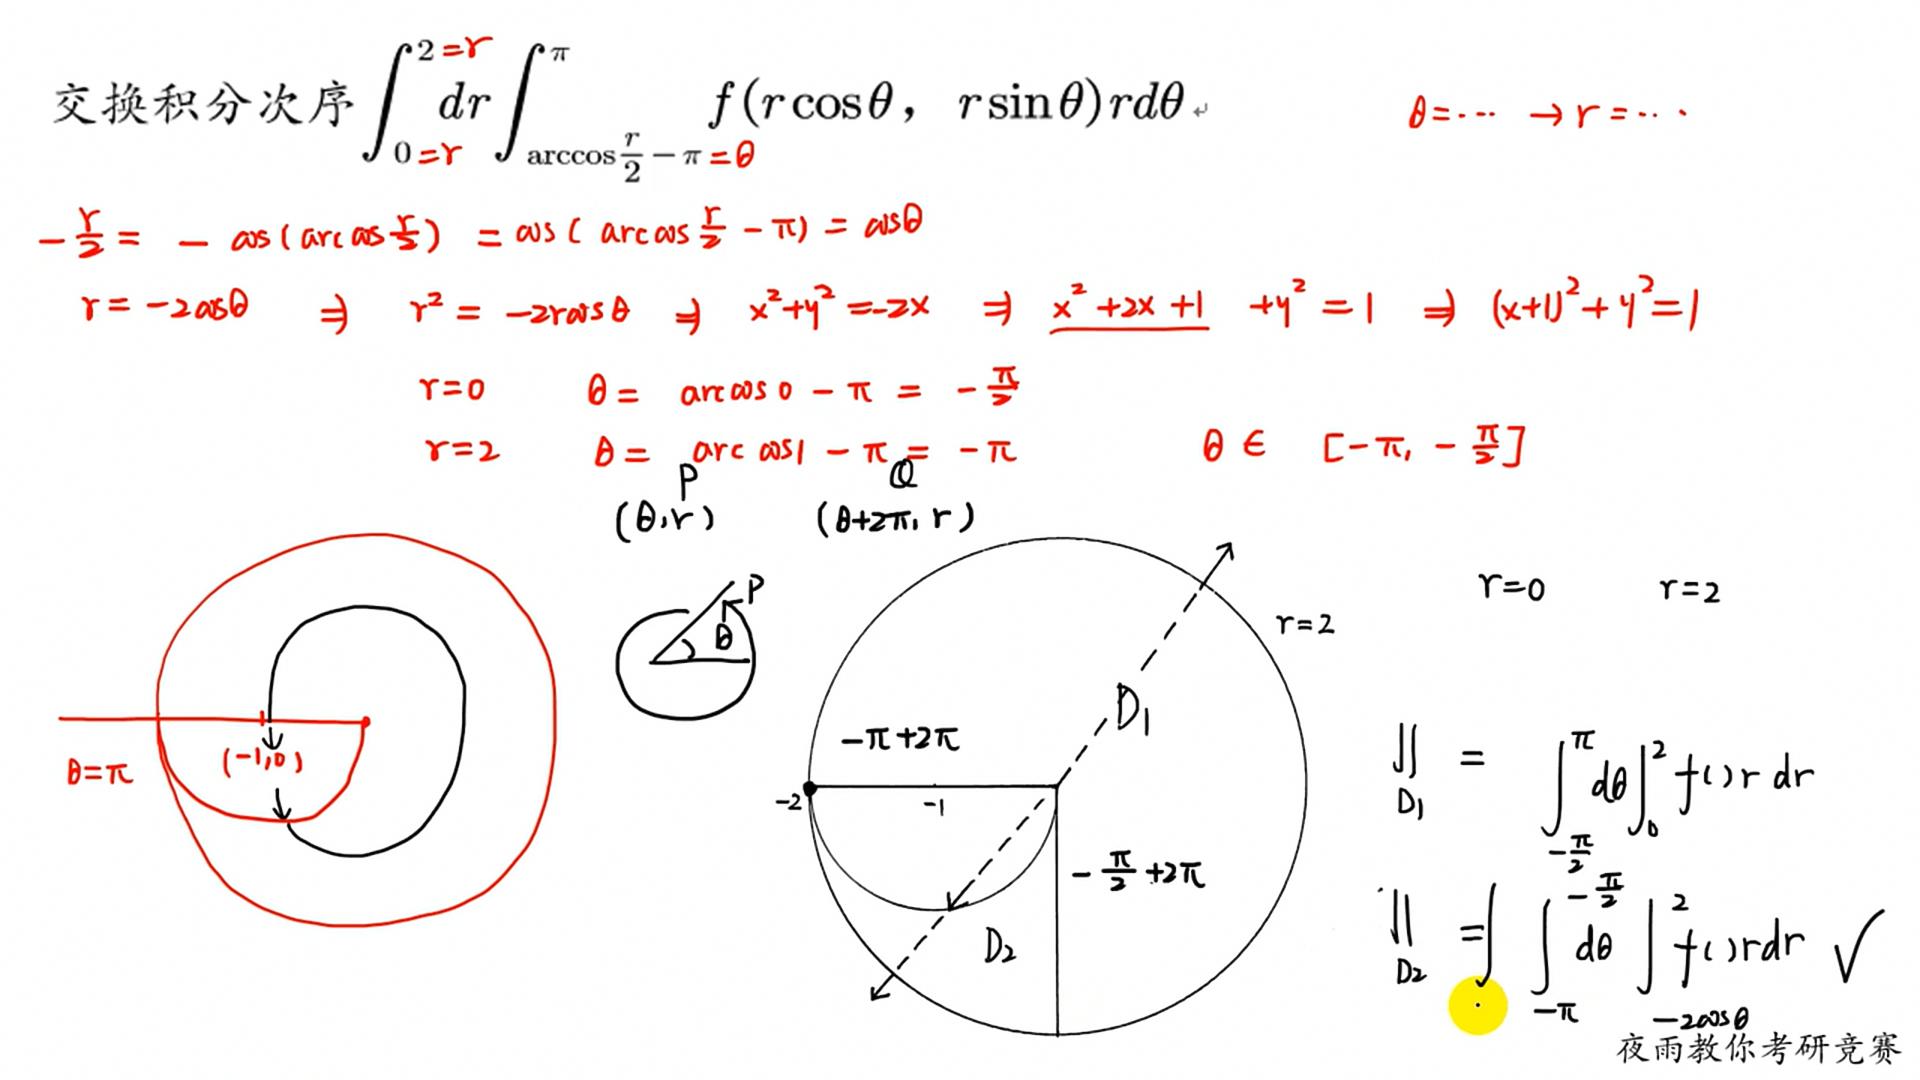 交换积分次序 ∫_{0=r}^{2=r} dr ∫_{arccos r/2 − π=θ}^{π} f(r cosθ, r sinθ)rdθ↵ θ=··· → r=···
−r/2 = −cos(arccos r/2) = cos(arccos r/2 − π) = cosθ
r = −2cosθ ⇒ r² = −2rcosθ ⇒ x²+y²=−2x ⇒ x²+2x+1 +y²=1 ⇒ (x+1)²+y²=1
r=0 θ= arccos0 − π = −π/2
r=2 θ= arccos1 − π = −π θ ∈ [−π, −π/2]
P Q
(θ,r) (θ+2π, r)
P
θ
r=0 r=2
r=2
D₁
−π+2π
(−1,0)
θ=π
−2 −1
−π/2 +2π
D₂
∬_{D₁} = ∫_{−π/2}^{π} dθ ∫_{0}^{2} f( ) r dr
∬_{D₂} =∫ ∫_{−π}^{−π/2} dθ ∫_{−2cosθ}^{2} f( )rdr ✓
夜雨教你考研竞赛